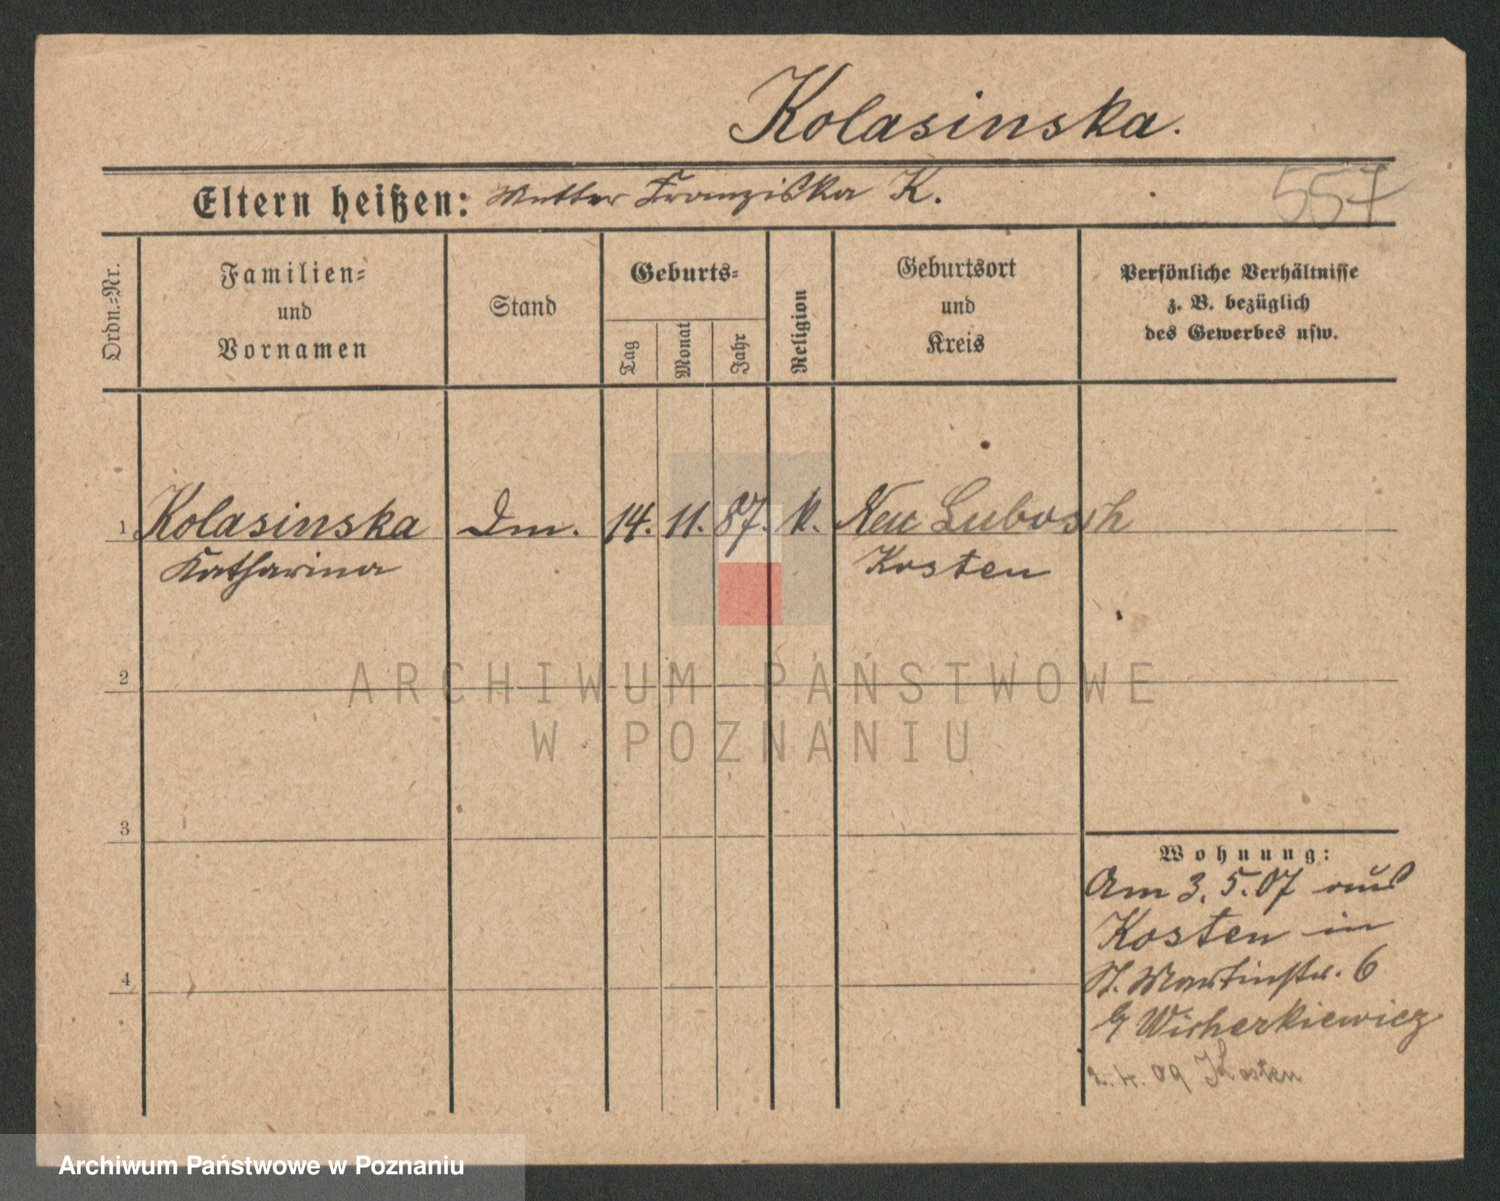 Kolasinska.
Eltern heißen: Mutter Franziska K.
557
Ordn.=Nr.
Familien=
und
Vornamen
Stand
Geburts=
Tag
Monat
Jahr
Religion
Geburtsort
und
Kreis
Persönliche Verhältnisse
z. B. bezüglich
des Gewerbes usw.
1 Kolasinska Dm. 14. 11. 87. k. Neu Lubosch
Katharina Kosten
2
ARCHIWUM PAŃSTWOWE
W POZNANIU
3
Wohnung:
Am 3. 5. 07 aus
Kosten in
4
St. Martinstr. 6
b/ Wicherkiewicz
2. 4. 09 Kosten
Archiwum Państwowe w Poznaniu